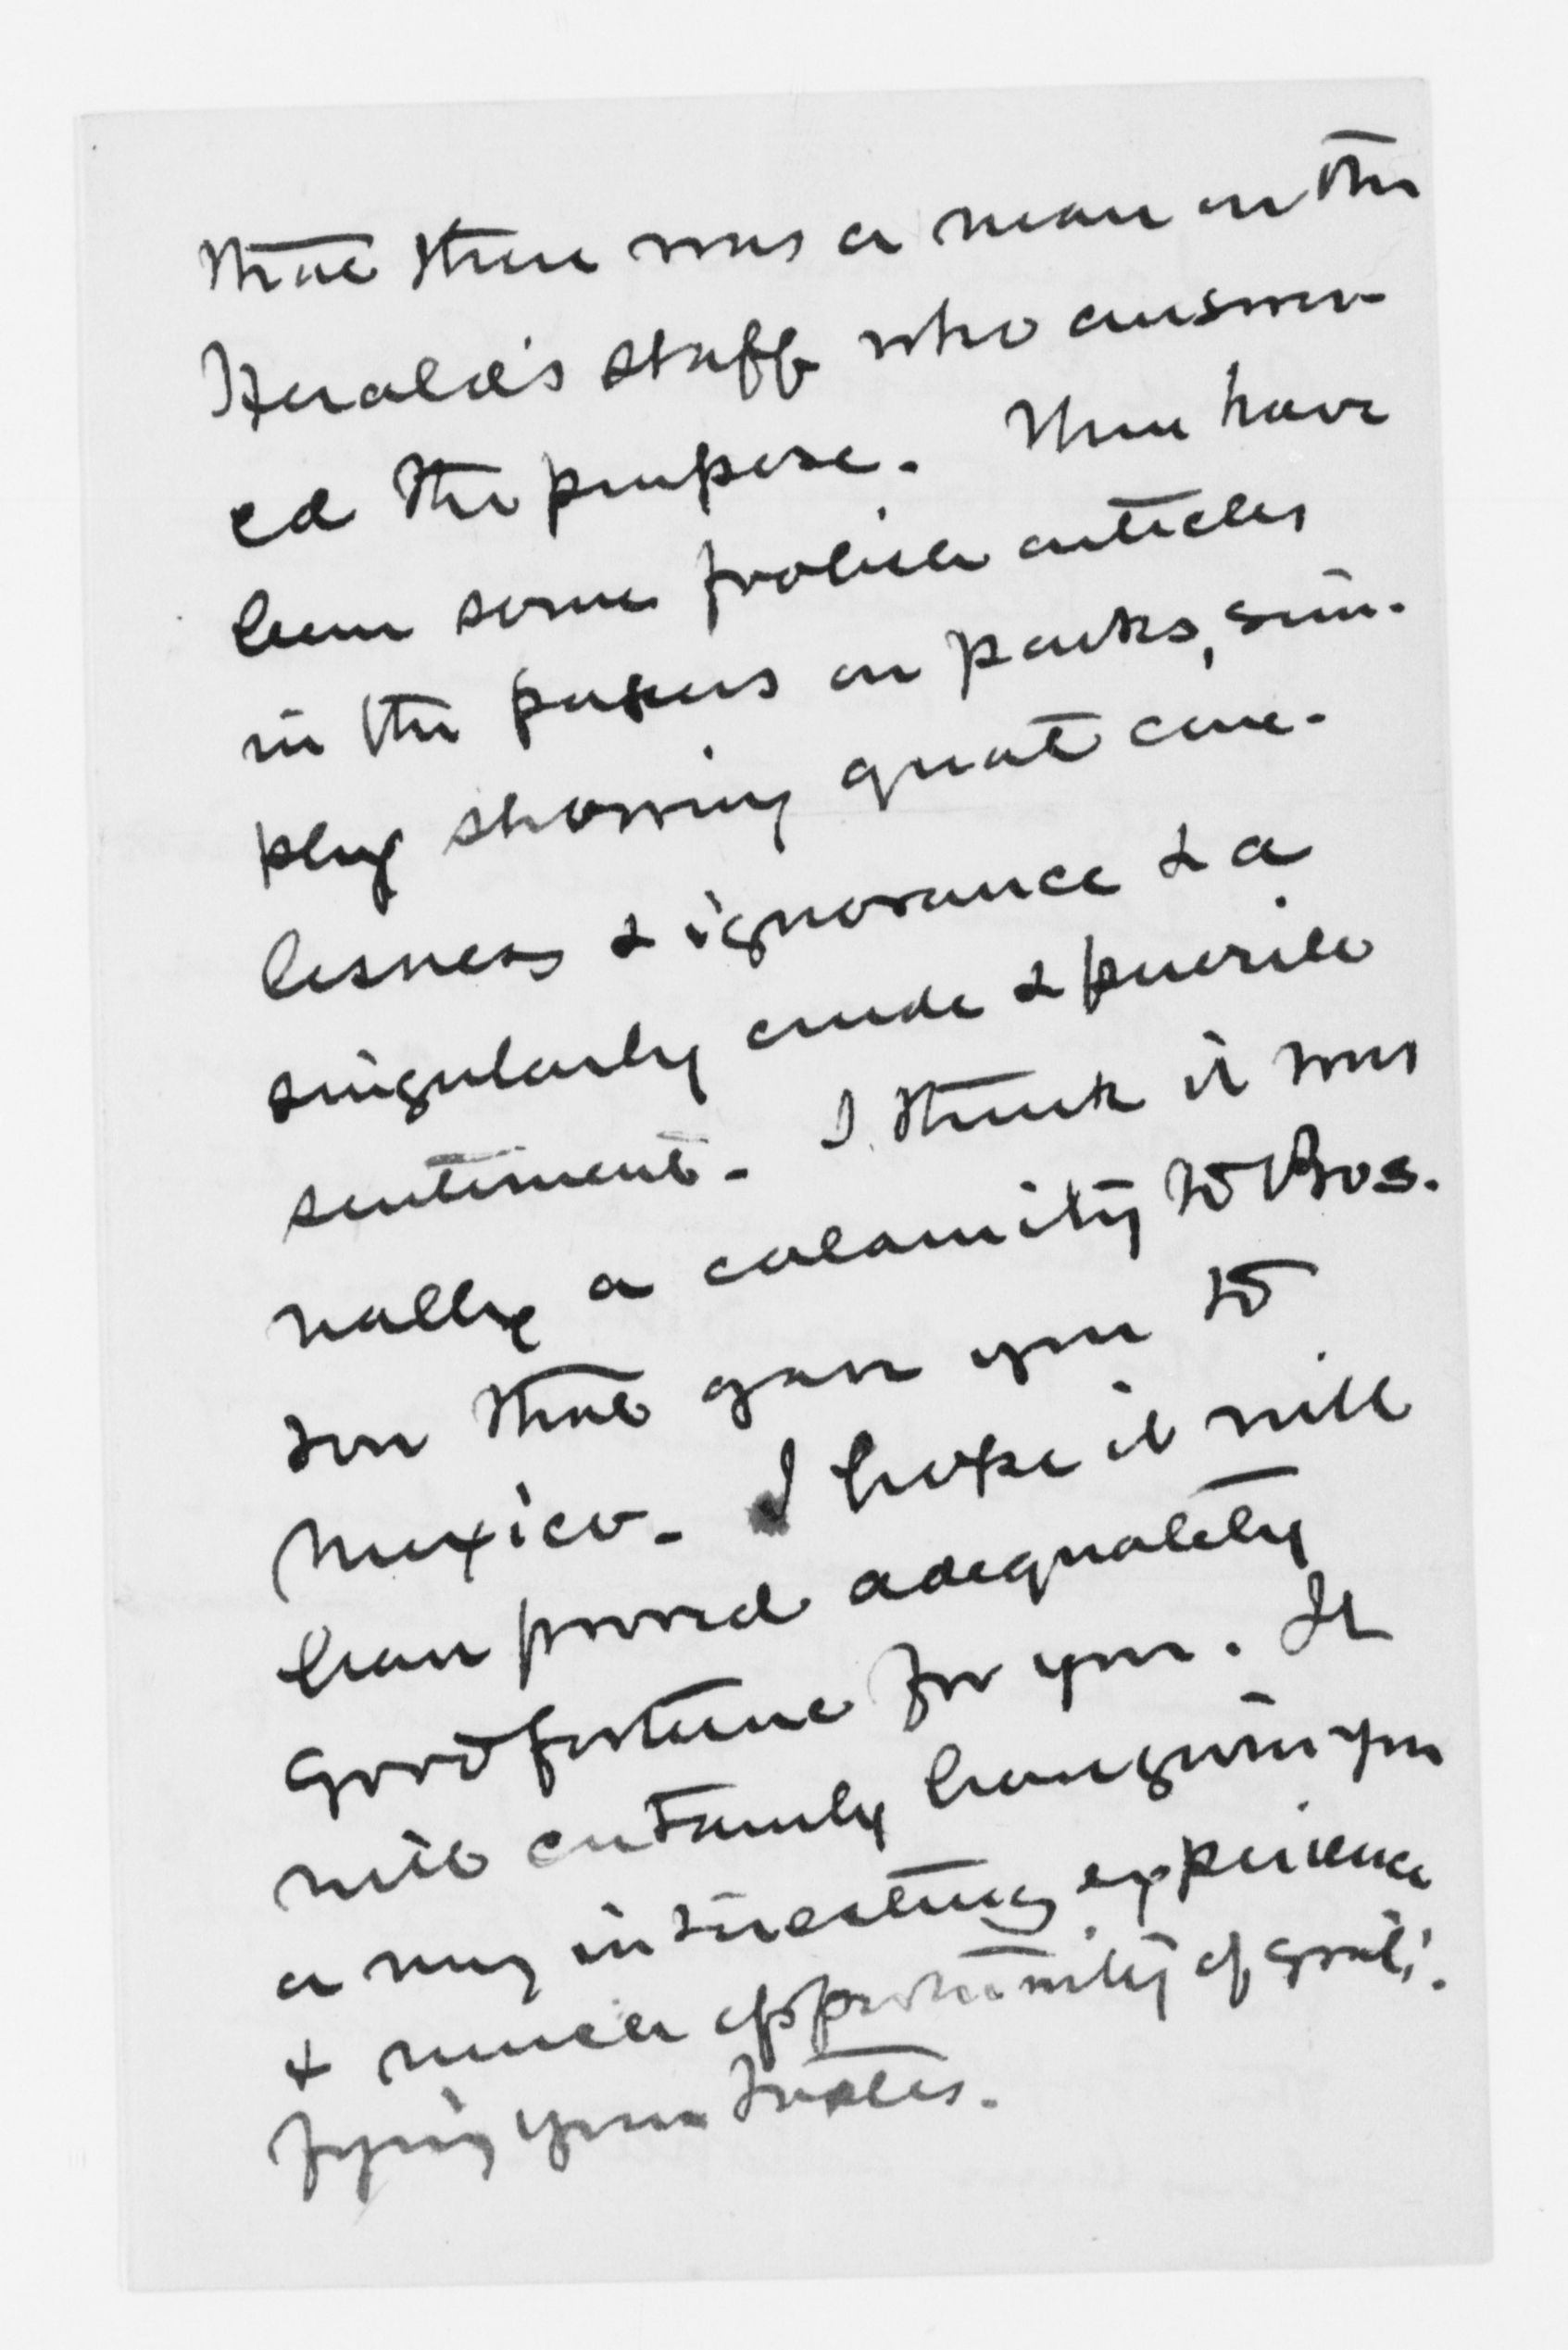 that there was a man on the
Herald's staff who answer-
ed the purpose. There have
been some foolish articles
in the papers on parks, sim-
ply showing great care-
lesness & ignorance & a
singularly crude & puerile
sentiment. I think it was
really a calamity to Bos-
ton that gave you to
Mexico. I hope it will
have proved adequately
good fortune for you. It
will certainly have given you
a very interesting experience
& much opportunity of grati-
fying your tastes.